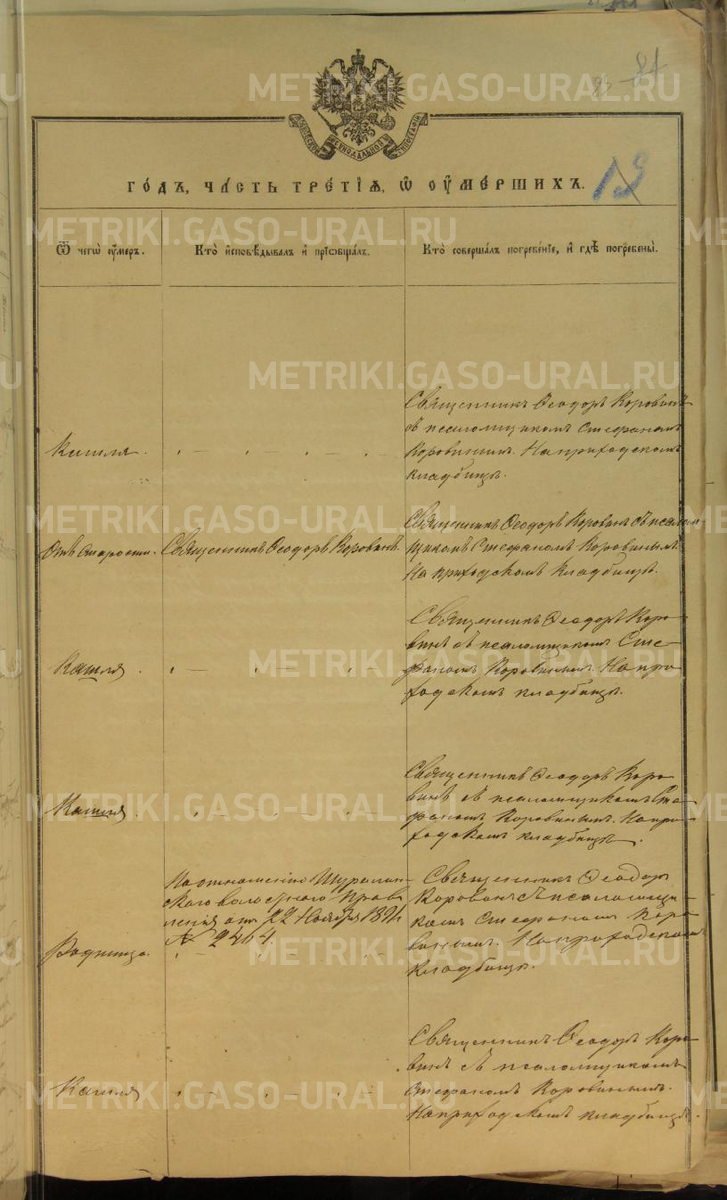 84
13
ГОДЪ, ЧАСТЬ ТРЕТІЯ, Ѿ ОУМЕРШИХЪ.
Ѿ чегѡ оумеръ.
Кто исповѣдывалъ и пріобщалъ.
Кто совершалъ погребеніе, и гдѣ погребены.
Кашля.
Священникъ Ѳеодоръ Коровинъ
съ псаломщикомъ Стефаномъ
Коровинымъ. На приходскомъ
кладбищѣ.
Отъ старости.
Священникъ Ѳеодоръ Коровинъ.
Священникъ Ѳеодоръ Коровинъ съ псалом
щикомъ Стефаномъ Коровинымъ
На приходскомъ кладбищѣ.
Кашля
Священникъ Ѳеодоръ Коро
винъ съ псаломщикомъ Сте
фаномъ Коровинымъ. На при
ходскомъ кладбищѣ.
Кашля
Священникъ Ѳеодоръ Коро
винъ съ псаломщикомъ Сте
фаномъ Коровинымъ. На при
ходскомъ кладбищѣ.
По отношенію Шуралин
скаго волостного Прав
ленія отъ 22 Ноября 1891
№ 2464
Родимца.
Священникъ Ѳеодор
Коровинъ съ псаломщи
комъ Стефаномъ Коро
винымъ. На приходскомъ
кладбищѣ.
Кашля
Священникъ Ѳеодоръ Коро
винъ съ псаломщикомъ
Стефаномъ Коровинымъ.
На приходскомъ кладбищѣ.
METRIKI.GASO-URAL.RU